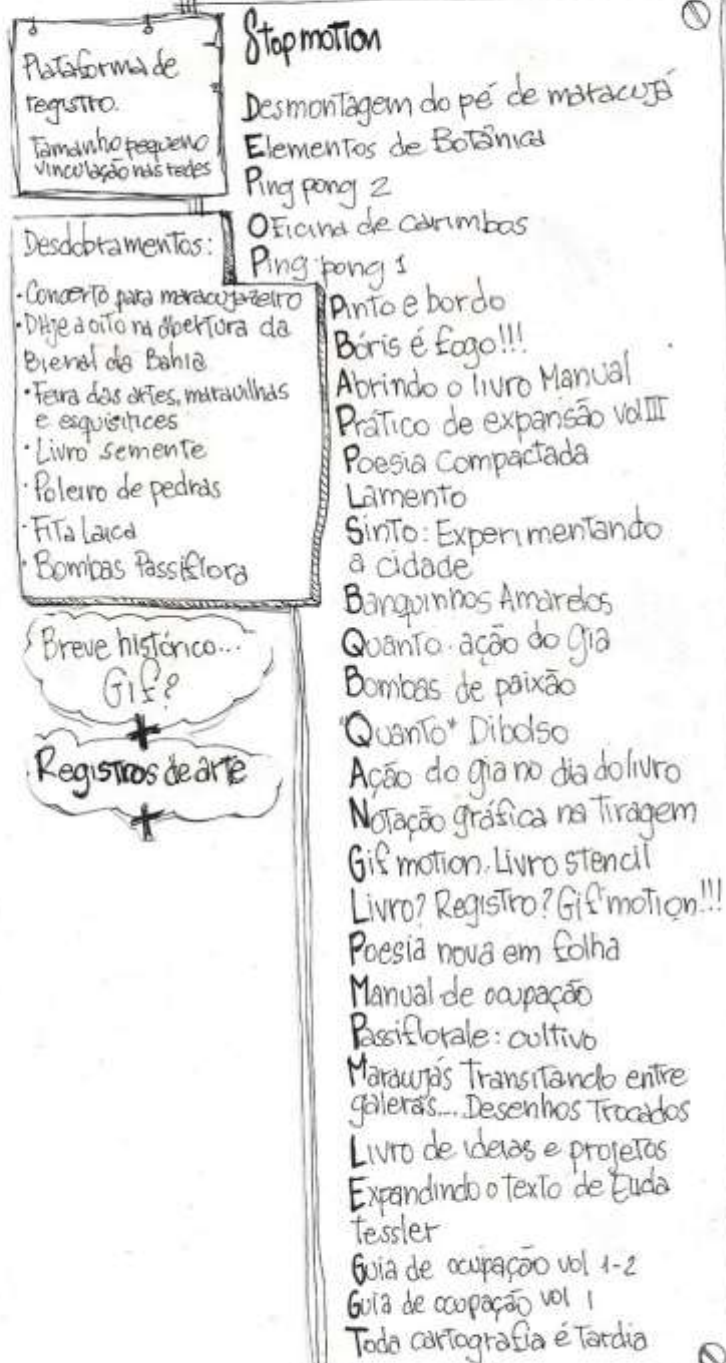 Plataforma de
registro.
Tamanho pequeno
vinculação nas redes
Desdobramentos:
· Concerto para maracujazeiro
· DHje a oito na abertura da
Bienal da Bahia
· Feira das artes, maravilhas
e esquisitices
· Livro semente
· Poleiro de pedras
· Fita Laica
· Bombas Passiflora
Breve histórico...
Gif?
+
Registros de arte
+
Stop motion
Desmontagem do pé de maracujá
Elementos de Botânica
Ping pong 2
Oficina de carimbos
Ping pong 1
Pinto e bordo
Bóris é fogo!!!
Abrindo o livro Manual
Prático de expansão vol III
Poesia Compactada
Lamento
Sinto: Experimentando
a cidade
Banquinhos Amarelos
Quanto. ação do Gia
Bombas de paixão
"Quanto" Dibolso
Ação do Gia no dia do livro
Notação gráfica na Tiragem
Gif motion. Livro stencil
Livro? Registro? Gif motion!!!
Poesia nova em folha
Manual de ocupação
Passiflorale: cultivo
Maracujás Transitando entre
galeras.... Desenhos Trocados
Livro de ideias e projetos
Expandindo o texto de
tessler
Guia de ocupação vol 1-2
Guia de ocupação vol 1
Toda cartografia é Tardia